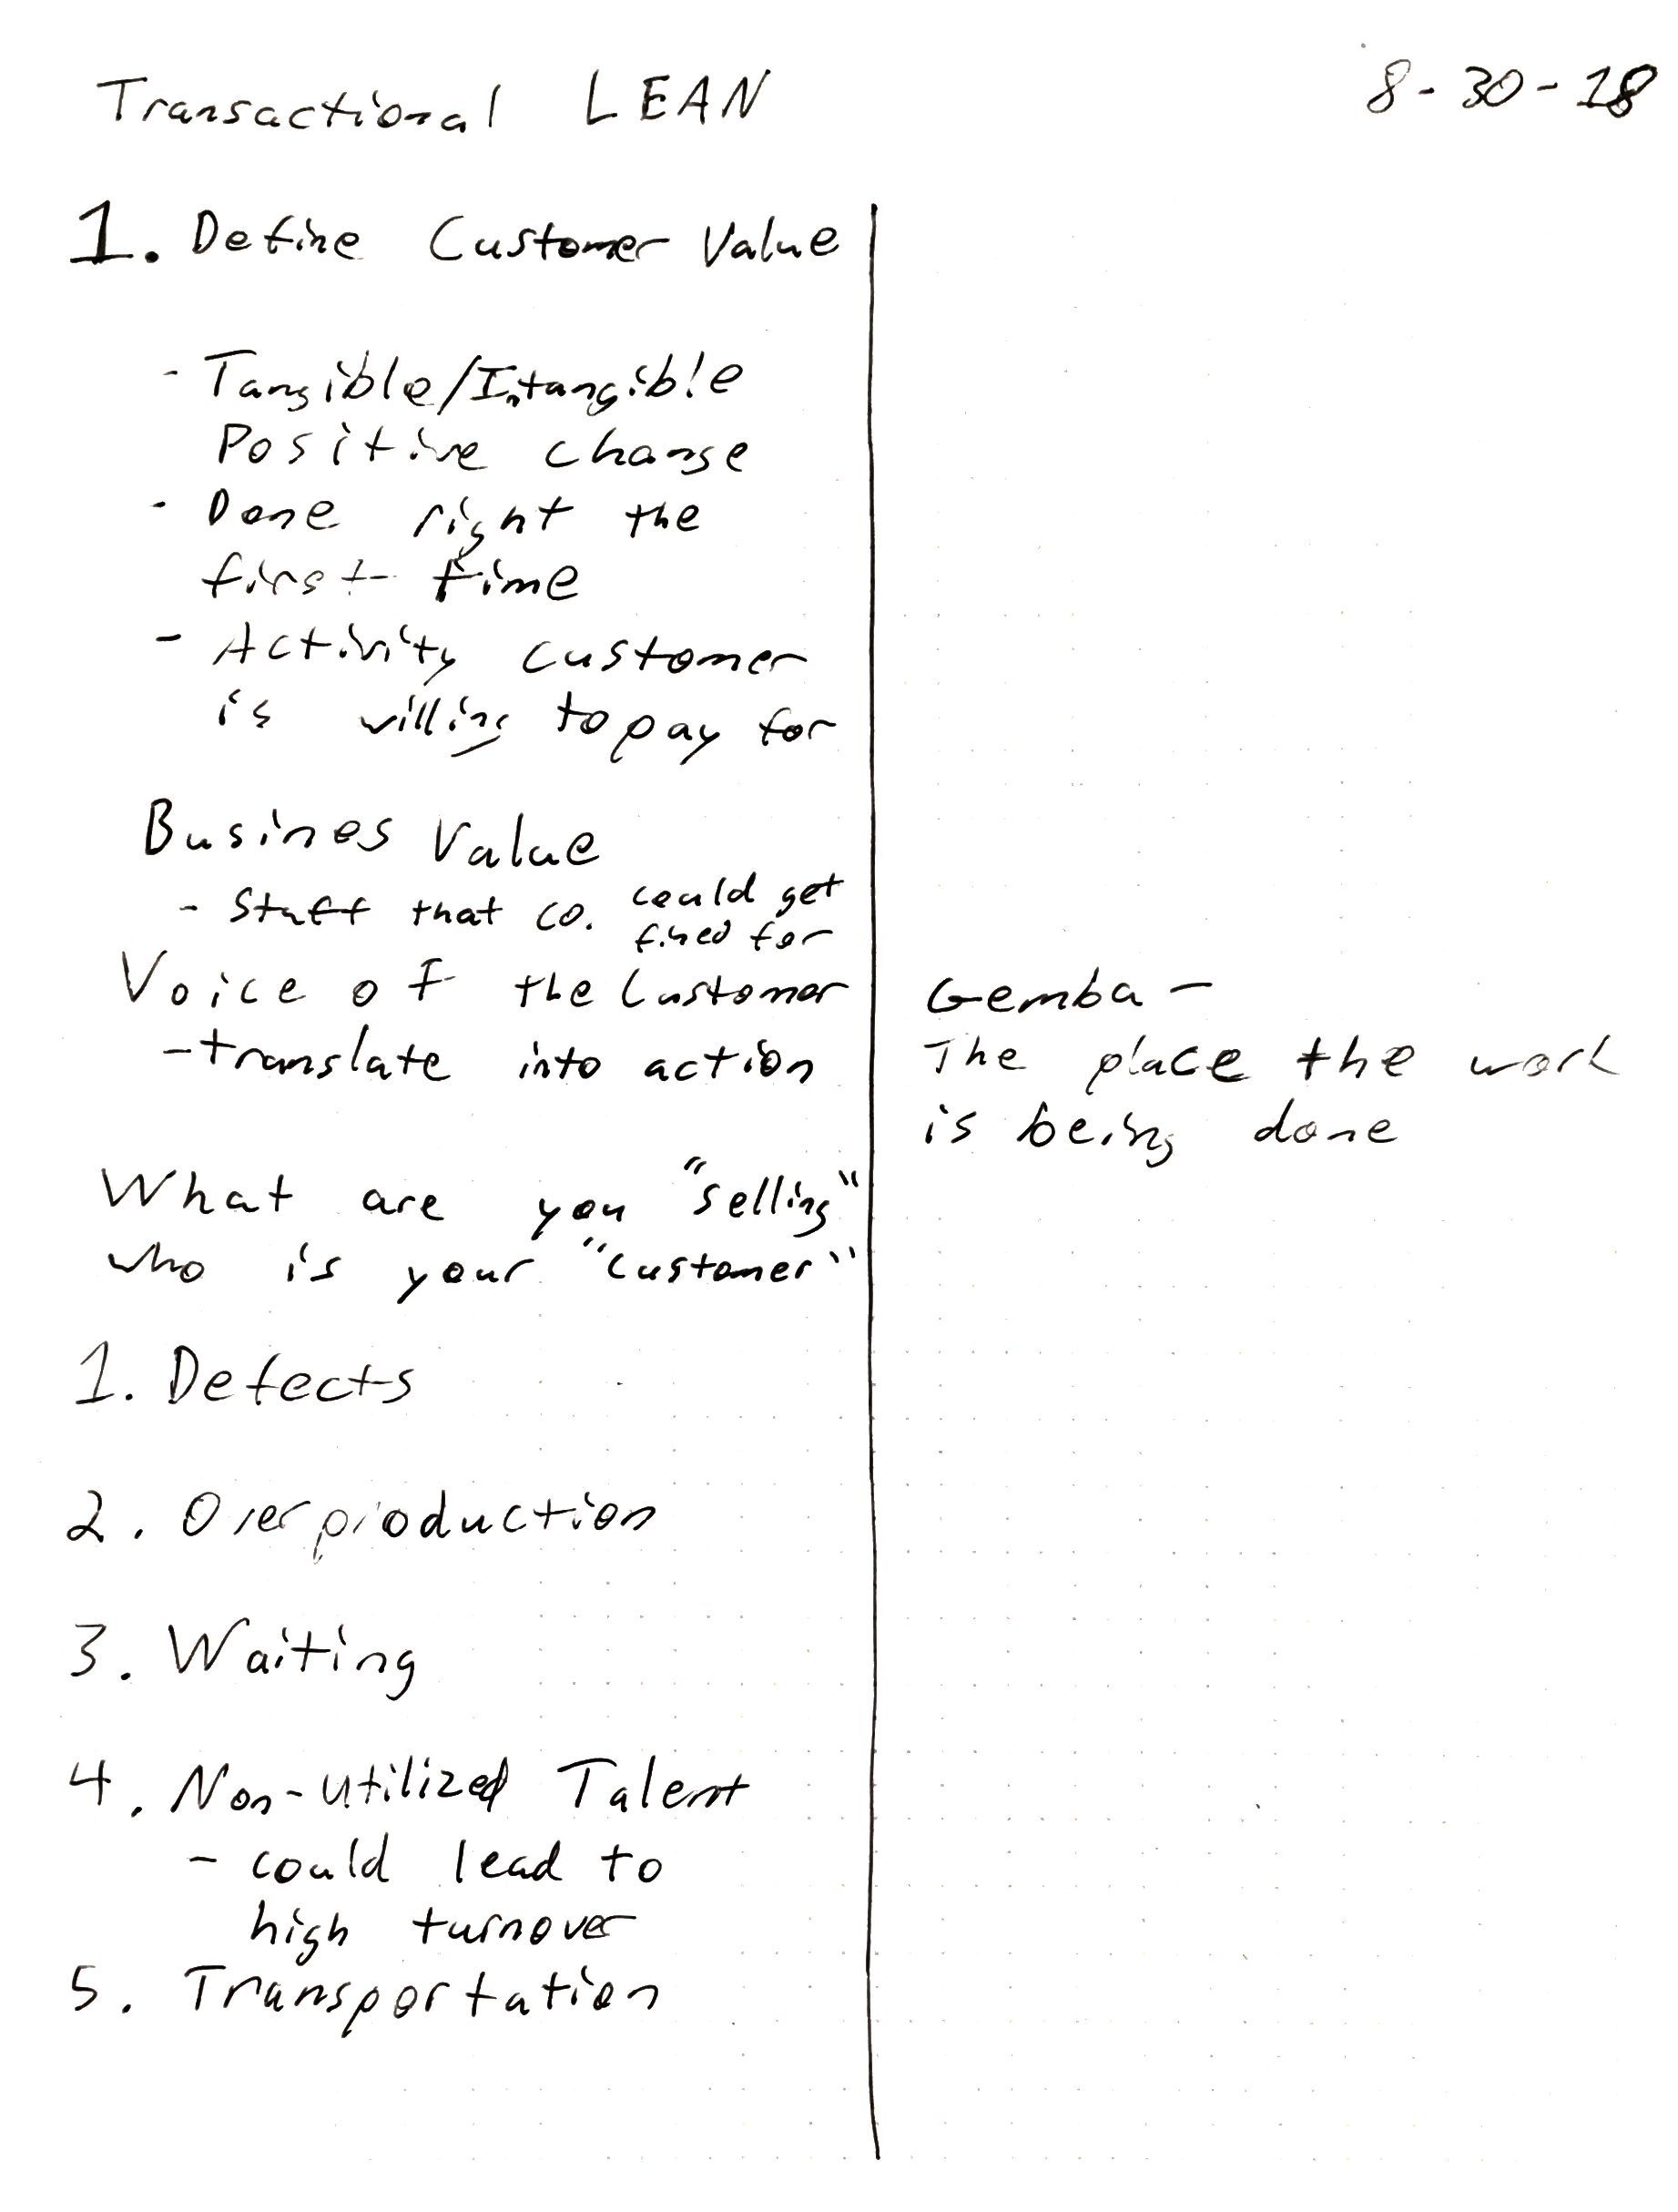 Transactional LEAN 8-30-18
1. Define Customer Value
- Tangible/Intangible
Positive change
- Done right the
first time
- Activity customer
is willing to pay for
Busines Value
- Stuff that co. could get
fined for
Voice of the Customer
- translate into action
What are you "selling"
who is your "customer"
1. Defects
2. Overproduction
3. Waiting
4. Non-utilized Talent
- could lead to
high turnover
5. Transportation
Gemba -
The place the work
is being done